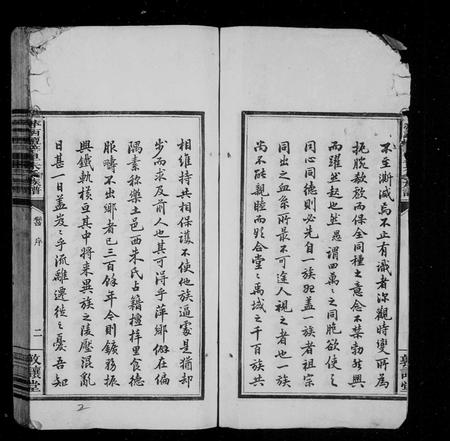 不至澌滅焉不止有識者深觀時變所為
扼腕敖敖而保全同種之意念不禁勃然興
而躍然起也然愚謂四萬之同胞欲使之
同心同德則必先自一族始蓋一族者祖宗
同出之血系所最不可途人視之者也一族
尚不能親睦而形合堂之禹域之千百族共
相維持共相保護不使他族逼處是猶却
步而求及前人也其可得乎萍鄉僻在偏
隅素稱樂土邑西朱氏占籍檀梓里食德
服疇不出鄉者已三百餘年今則鑛務振
興鐵軌橫亘其中將來異族之陵壓混亂
日甚一日蓋岌岌乎流離遷徙之憂吾知
譜序
二
敦讓堂
2